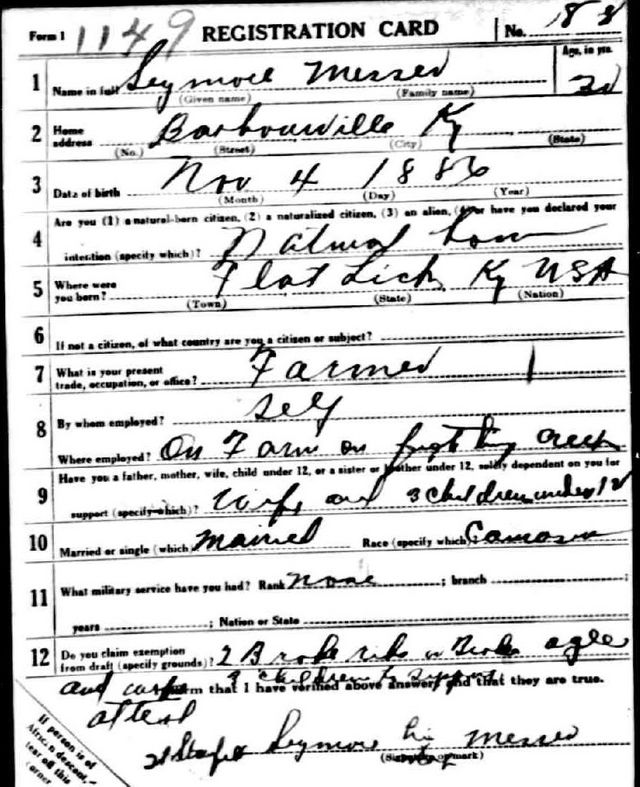 Form 1 1149 REGISTRATION CARD No. 88
1 Name in full Seymore Messer Age, in yrs.
(Given name) (Family name)
2 Home address Barbourville Ky
(No.) (Street) (City) (State)
3 Date of birth Nov 4 1886
(Month) (Day) (Year)
4 Are you (1) a natural-born citizen, (2) a naturalized citizen, (3) an alien, (4) or have you declared your
intention (specify which)? Natural born
5 Where were you born? Flat Lick Ky USA
(Town) (State) (Nation)
6 If not a citizen, of what country are you a citizen or subject?
7 What is your present trade, occupation, or office? Farmer
8 By whom employed? Self
Where employed? On Farm on Creek
9 Have you a father, mother, wife, child under 12, or a sister or brother under 12, solely dependent on you for
support (specify which)? Wife and 3 children under 12
10 Married or single (which) Married Race (specify which)?
11 What military service have you had? Rank None ; branch ;
years ; Nation or State
12 Do you claim exemption from draft (specify grounds)? 2 Broke ribs Broke
and 3 children to support
I affirm that I have verified above answers and that they are true.
attest
Seymore his Messer
(Signature or mark)
If person is of
African descent,
tear off this
corner